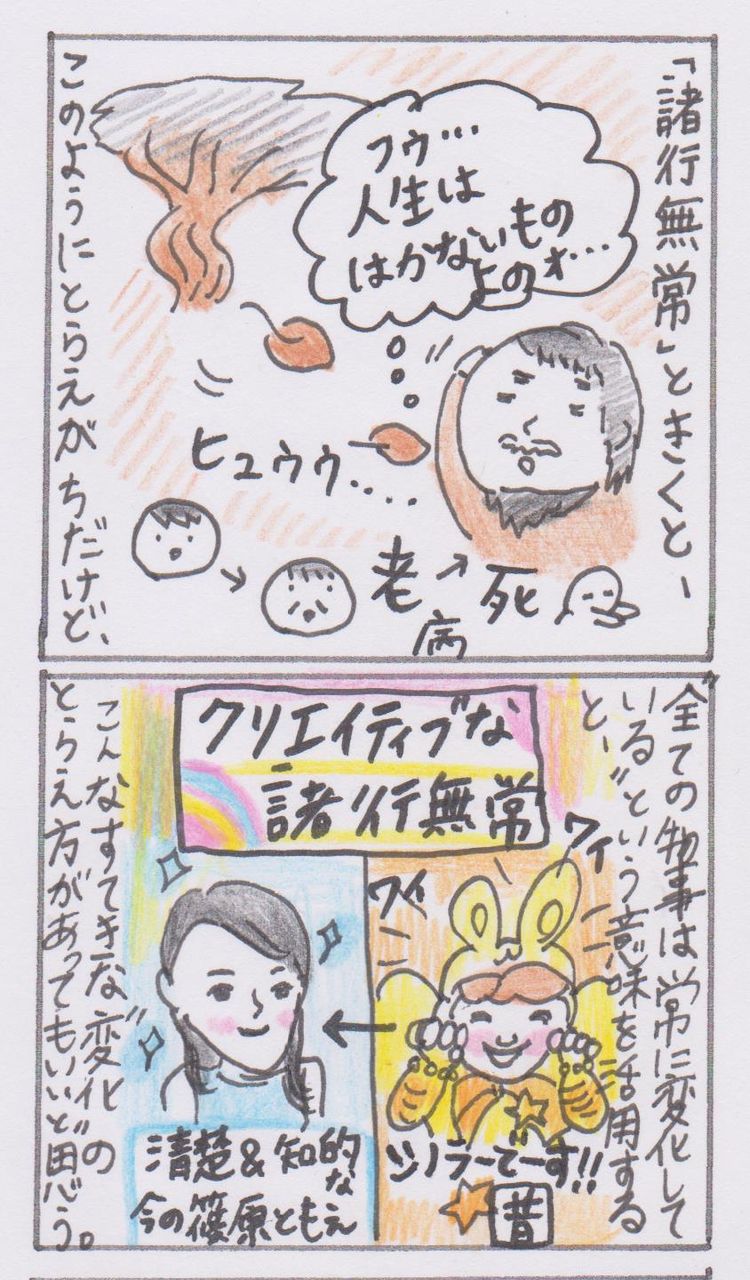 「諸行無常」ときくと…
フゥ…
人生は
はかないもの
よのォ…
ヒュウゥ....
老
病
死
このようにとらえがちだけど、
全ての物事は常に変化して
いる"という意味を活用する
と、
クリエイティブな
諸行無常
ワイ
ワイ
シノラーでーす!!
昔
清楚&知的
な
今の篠原ともえ
こんなすてきな変化の
とらえ方があってもいいと思う。